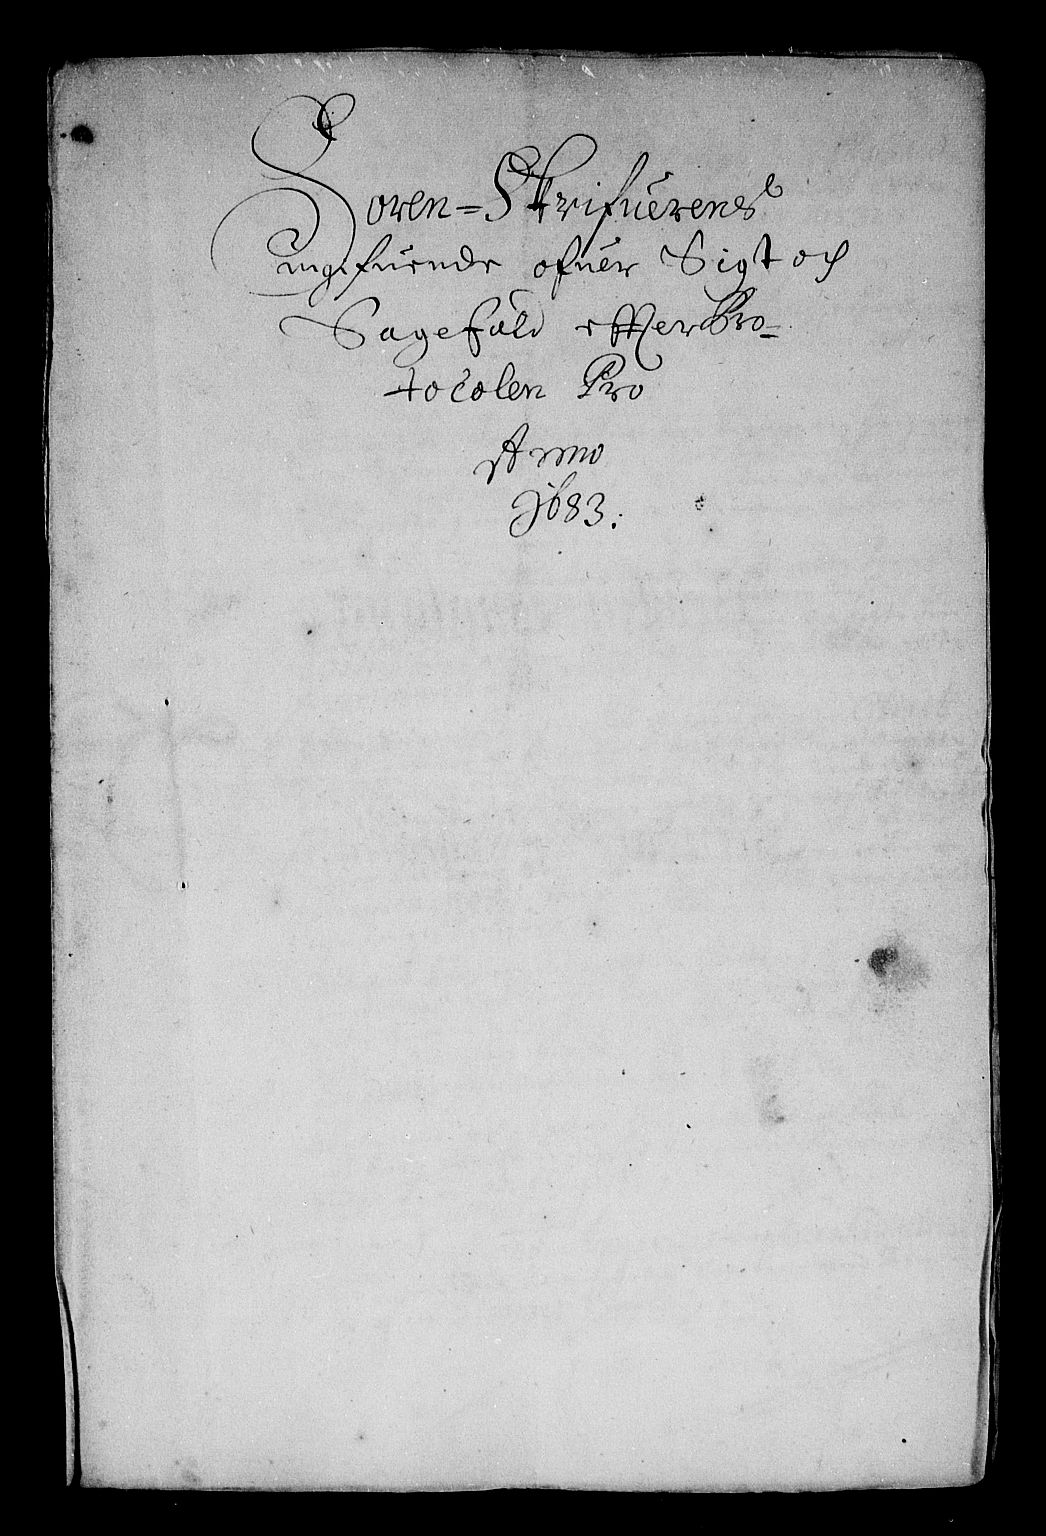 Soren-Skrifuerenes
angifuende ofuer Sigt och
Sagefald effter Pro-
tocolen Pro
Anno
1683.